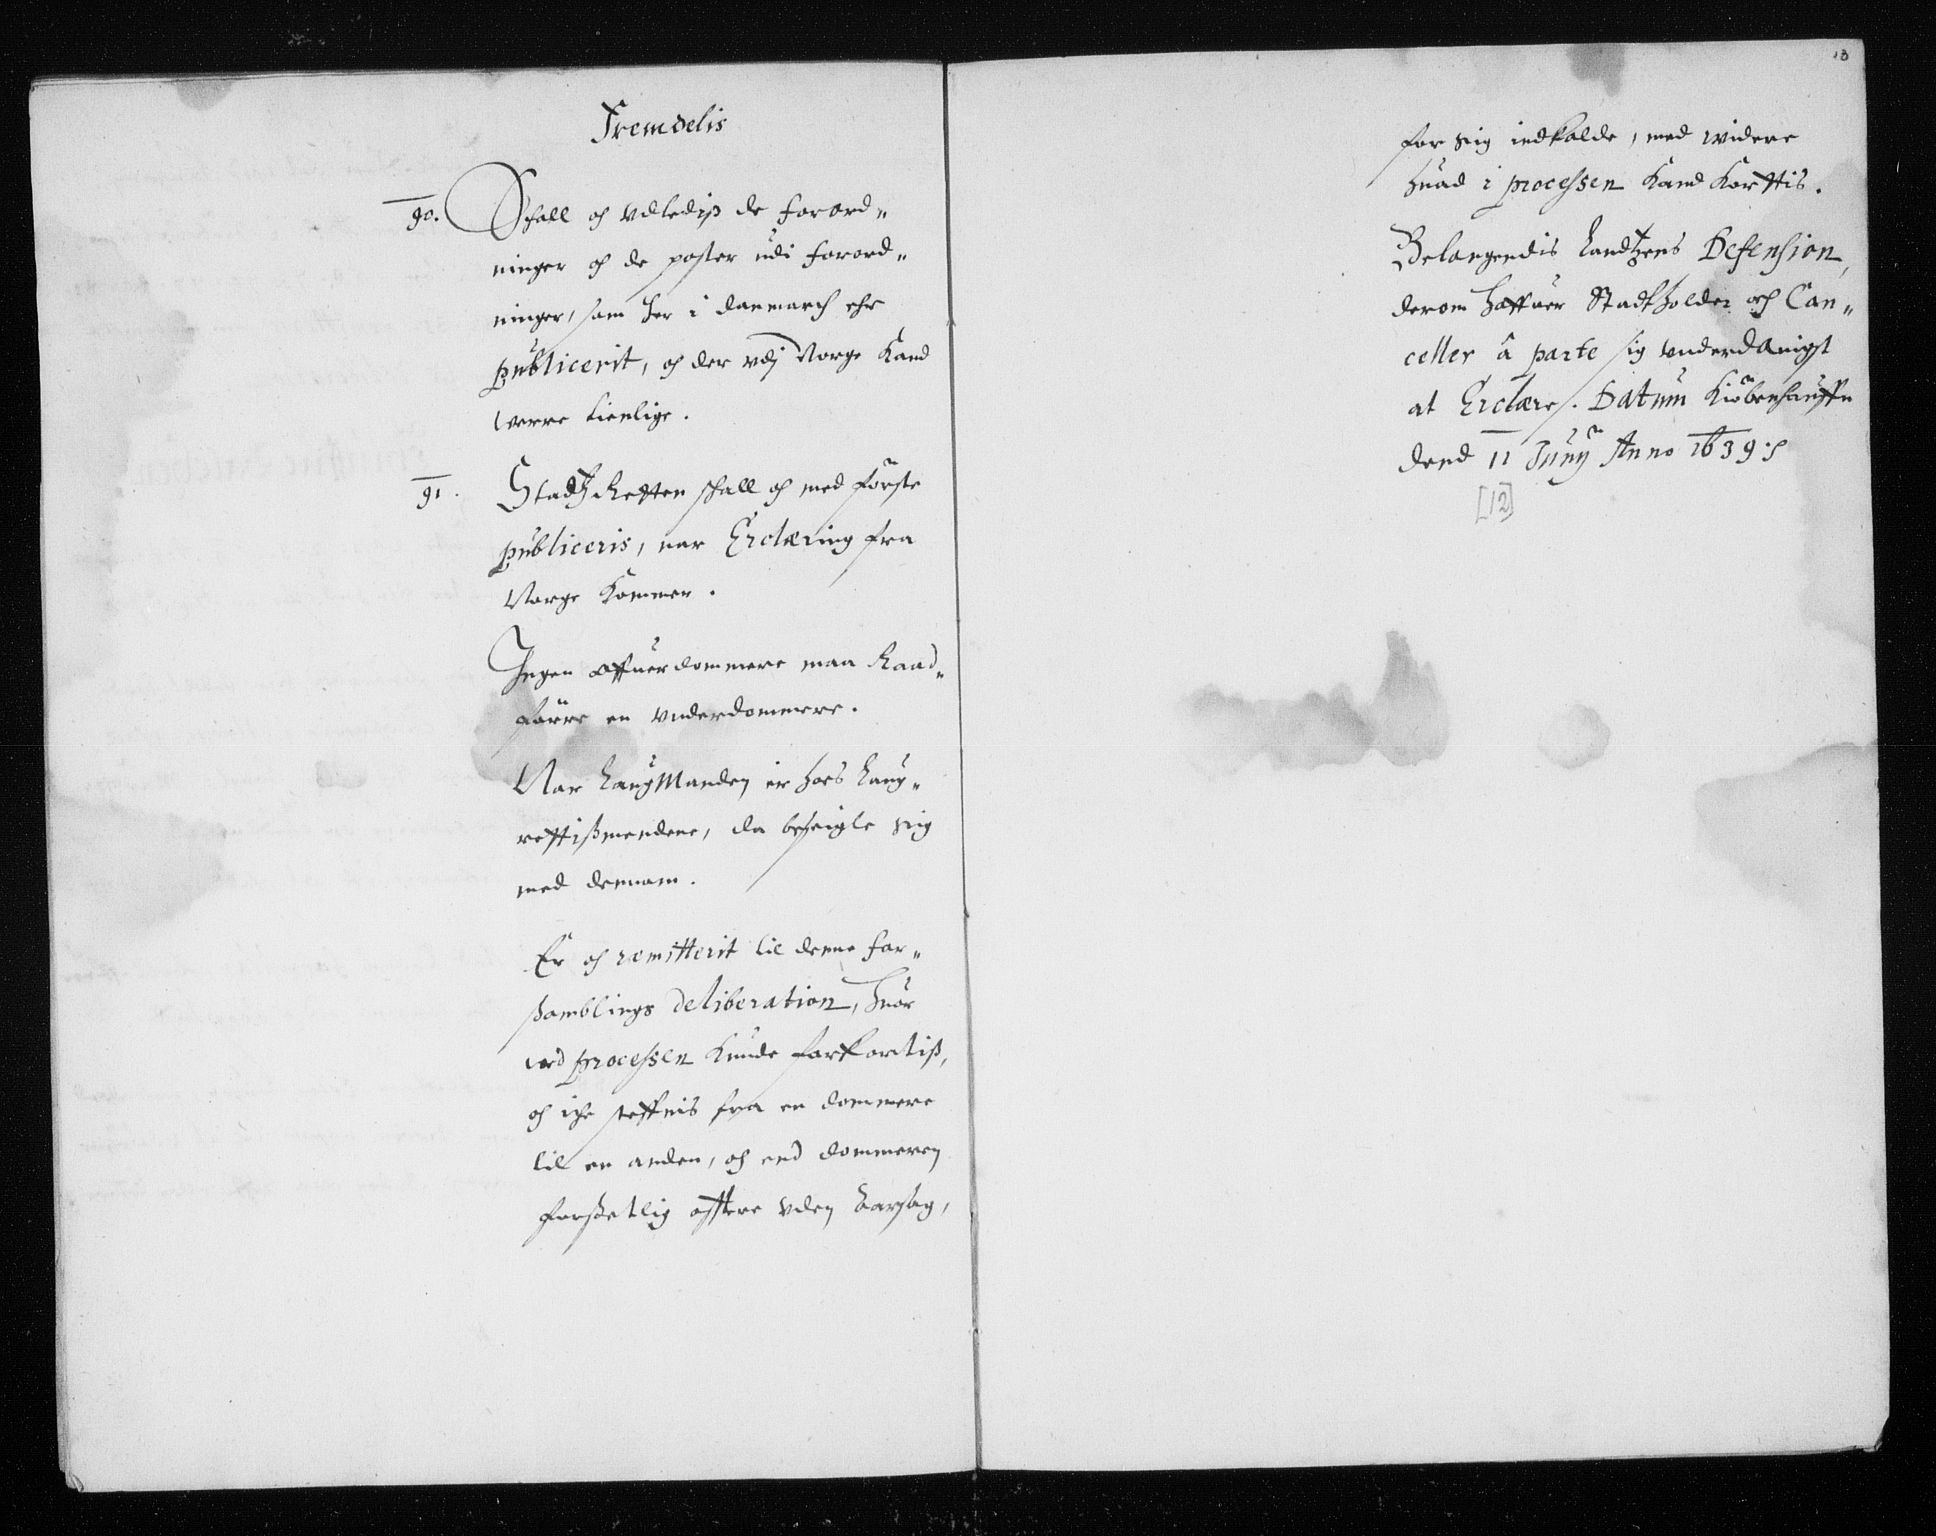 Fremdelis
90. Schall och vdledis de forord„
ninger och de poster udi forord„
ninger, som her i danmarch ehr
publicerit, och der vdj Norge Kand
werre tienlige.
91. Stadtz Retten schall och med første
publiceris, nar Erclæring fra
Norge Kommer.
Ingen offuerdommere maa Raad„
førre en vnderdommere.
Nar LaugManden er hoes Laug„
rettißmendene, da beseigle sig
med dennem.
Er och remitterit til denne for„
ßamblings deliberation, huor
ved processen Kunde forkortiß,
och iche steffnis fra en dommere
til en anden, och end dommeren
forsetlig offtere vden Aarsag,
13
for sig indkalde, med widere
huad i processen Kand Korttis.
Belangendis Landtzens Defension,
derom haffuer Stadtholder och Can„
celler â parte sig vnderdanigst
at Erclære. Datum Kiøbenhauffn
dend 11 Junij Anno 1639.
[12]